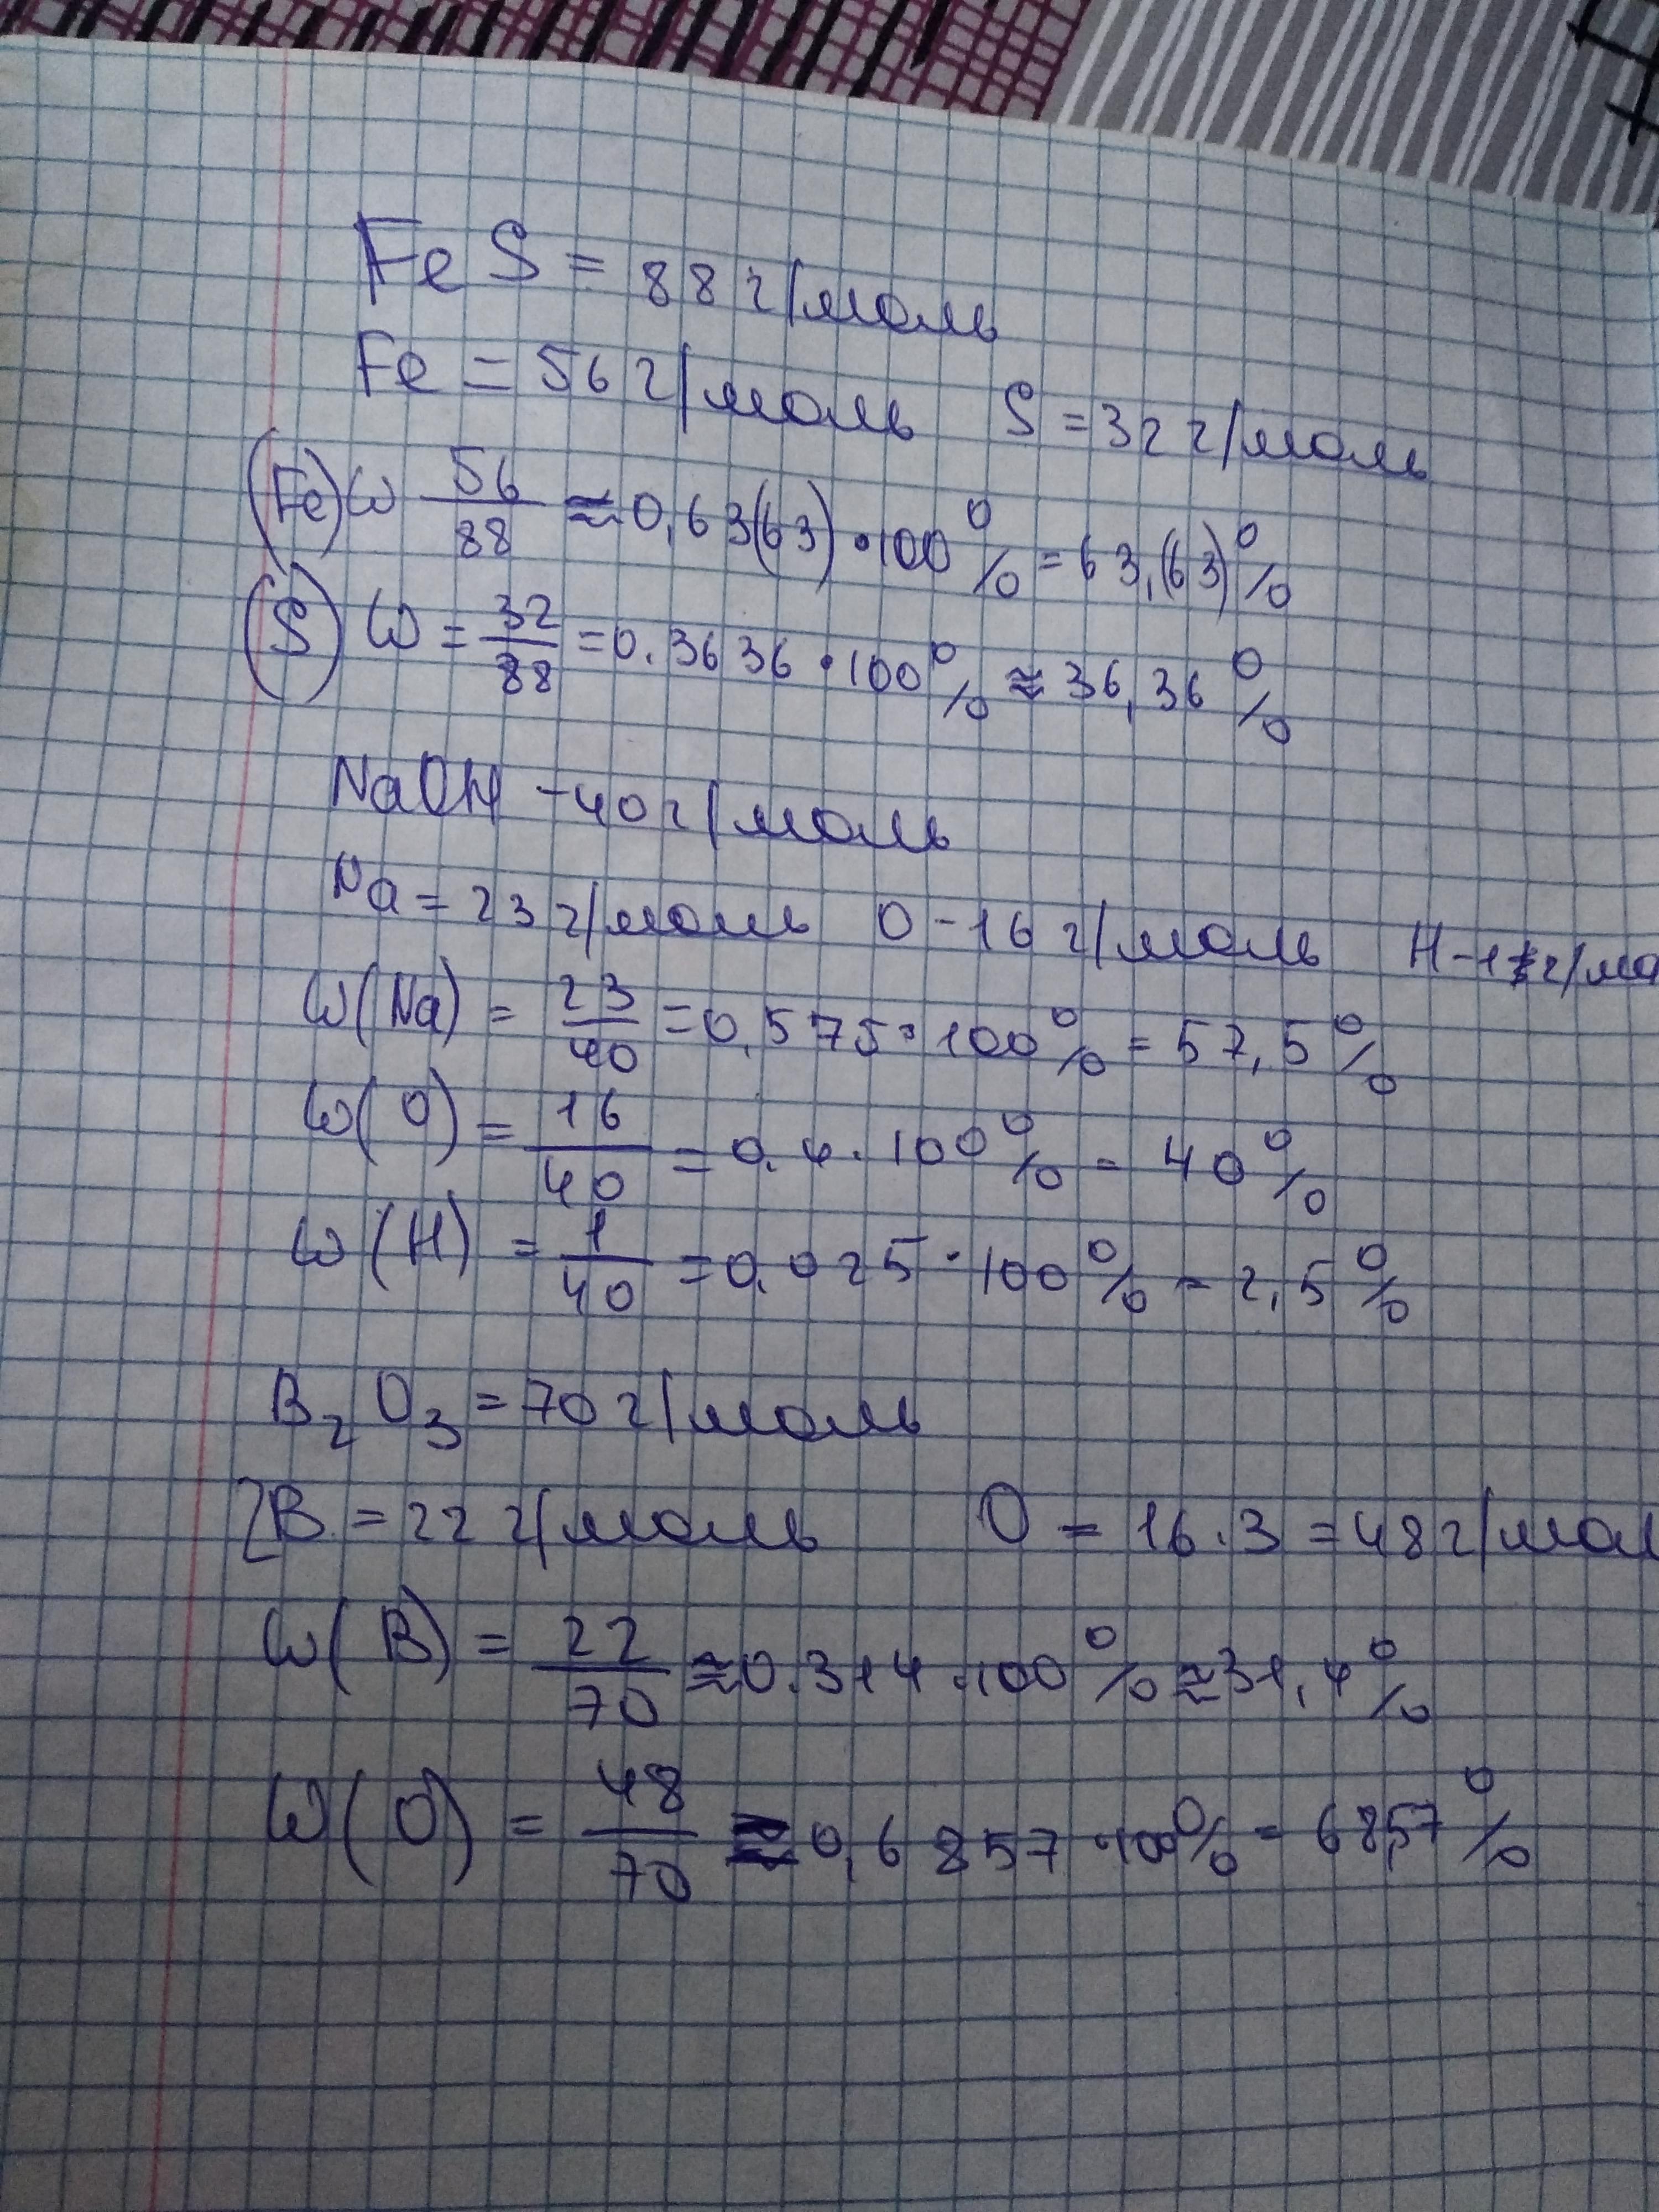 FeS = 88 г/моль
Fe = 56 г/моль S = 32 г/моль
(Fe) ω 56/88 ≈ 0,63(63) · 100% = 63,(63)%
(S) ω = 32/88 = 0.3636 · 100% ≈ 36,36%
NaOH - 40 г/моль
Na = 23 г/моль O - 16 г/моль H - 1 г/мо
ω(Na) = 23/40 = 0,575 · 100% = 57,5%
ω(O) = 16/40 = 0.4 · 100% = 40%
ω(H) = 1/40 = 0.025 · 100% = 2,5%
B₂O₃ = 70 г/моль
2B = 22 г/моль O = 16 · 3 = 48 г/мол
ω(B) = 22/70 ≈ 0.314 · 100% ≈ 31,4%
ω(O) = 48/70 ≈ 0,6857 · 100% = 68,57%